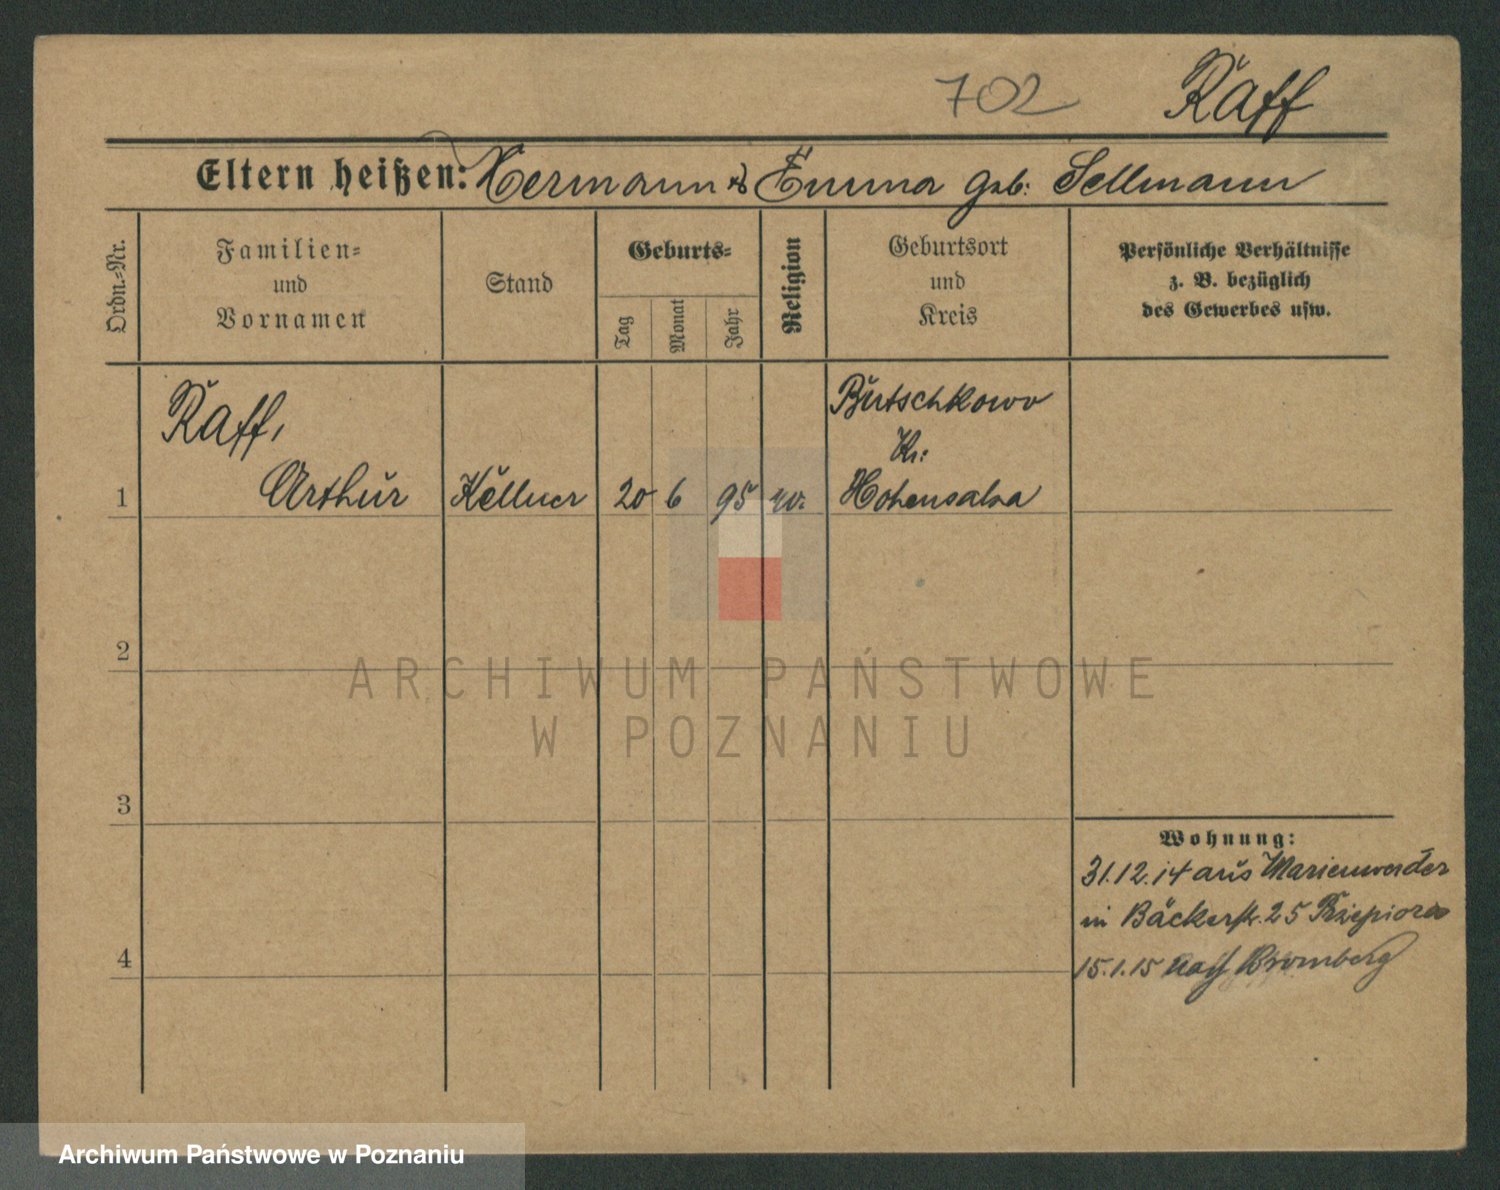 702 Raff
Eltern heißen: Hermann & Emma geb: Sellmann
Ordn.=Nr.
Familien=
und
Vornamen
Stand
Geburts=
Tag
Monat
Jahr
Religion
Geburtsort
und
Kreis
Persönliche Verhältnisse
z. B. bezüglich
des Gewerbes usw.
Raff,
Arthur
1
Kellner
20 6 95 ev.
Butschkowo
Kr:
Hohensalza
2
3
4
Wohnung:
31.12.14 aus Marienwerder
in Bäckerstr. 25
15.1.15 nach Bromberg
ARCHIWUM PAŃSTWOWE
W POZNANIU
Archiwum Państwowe w Poznaniu